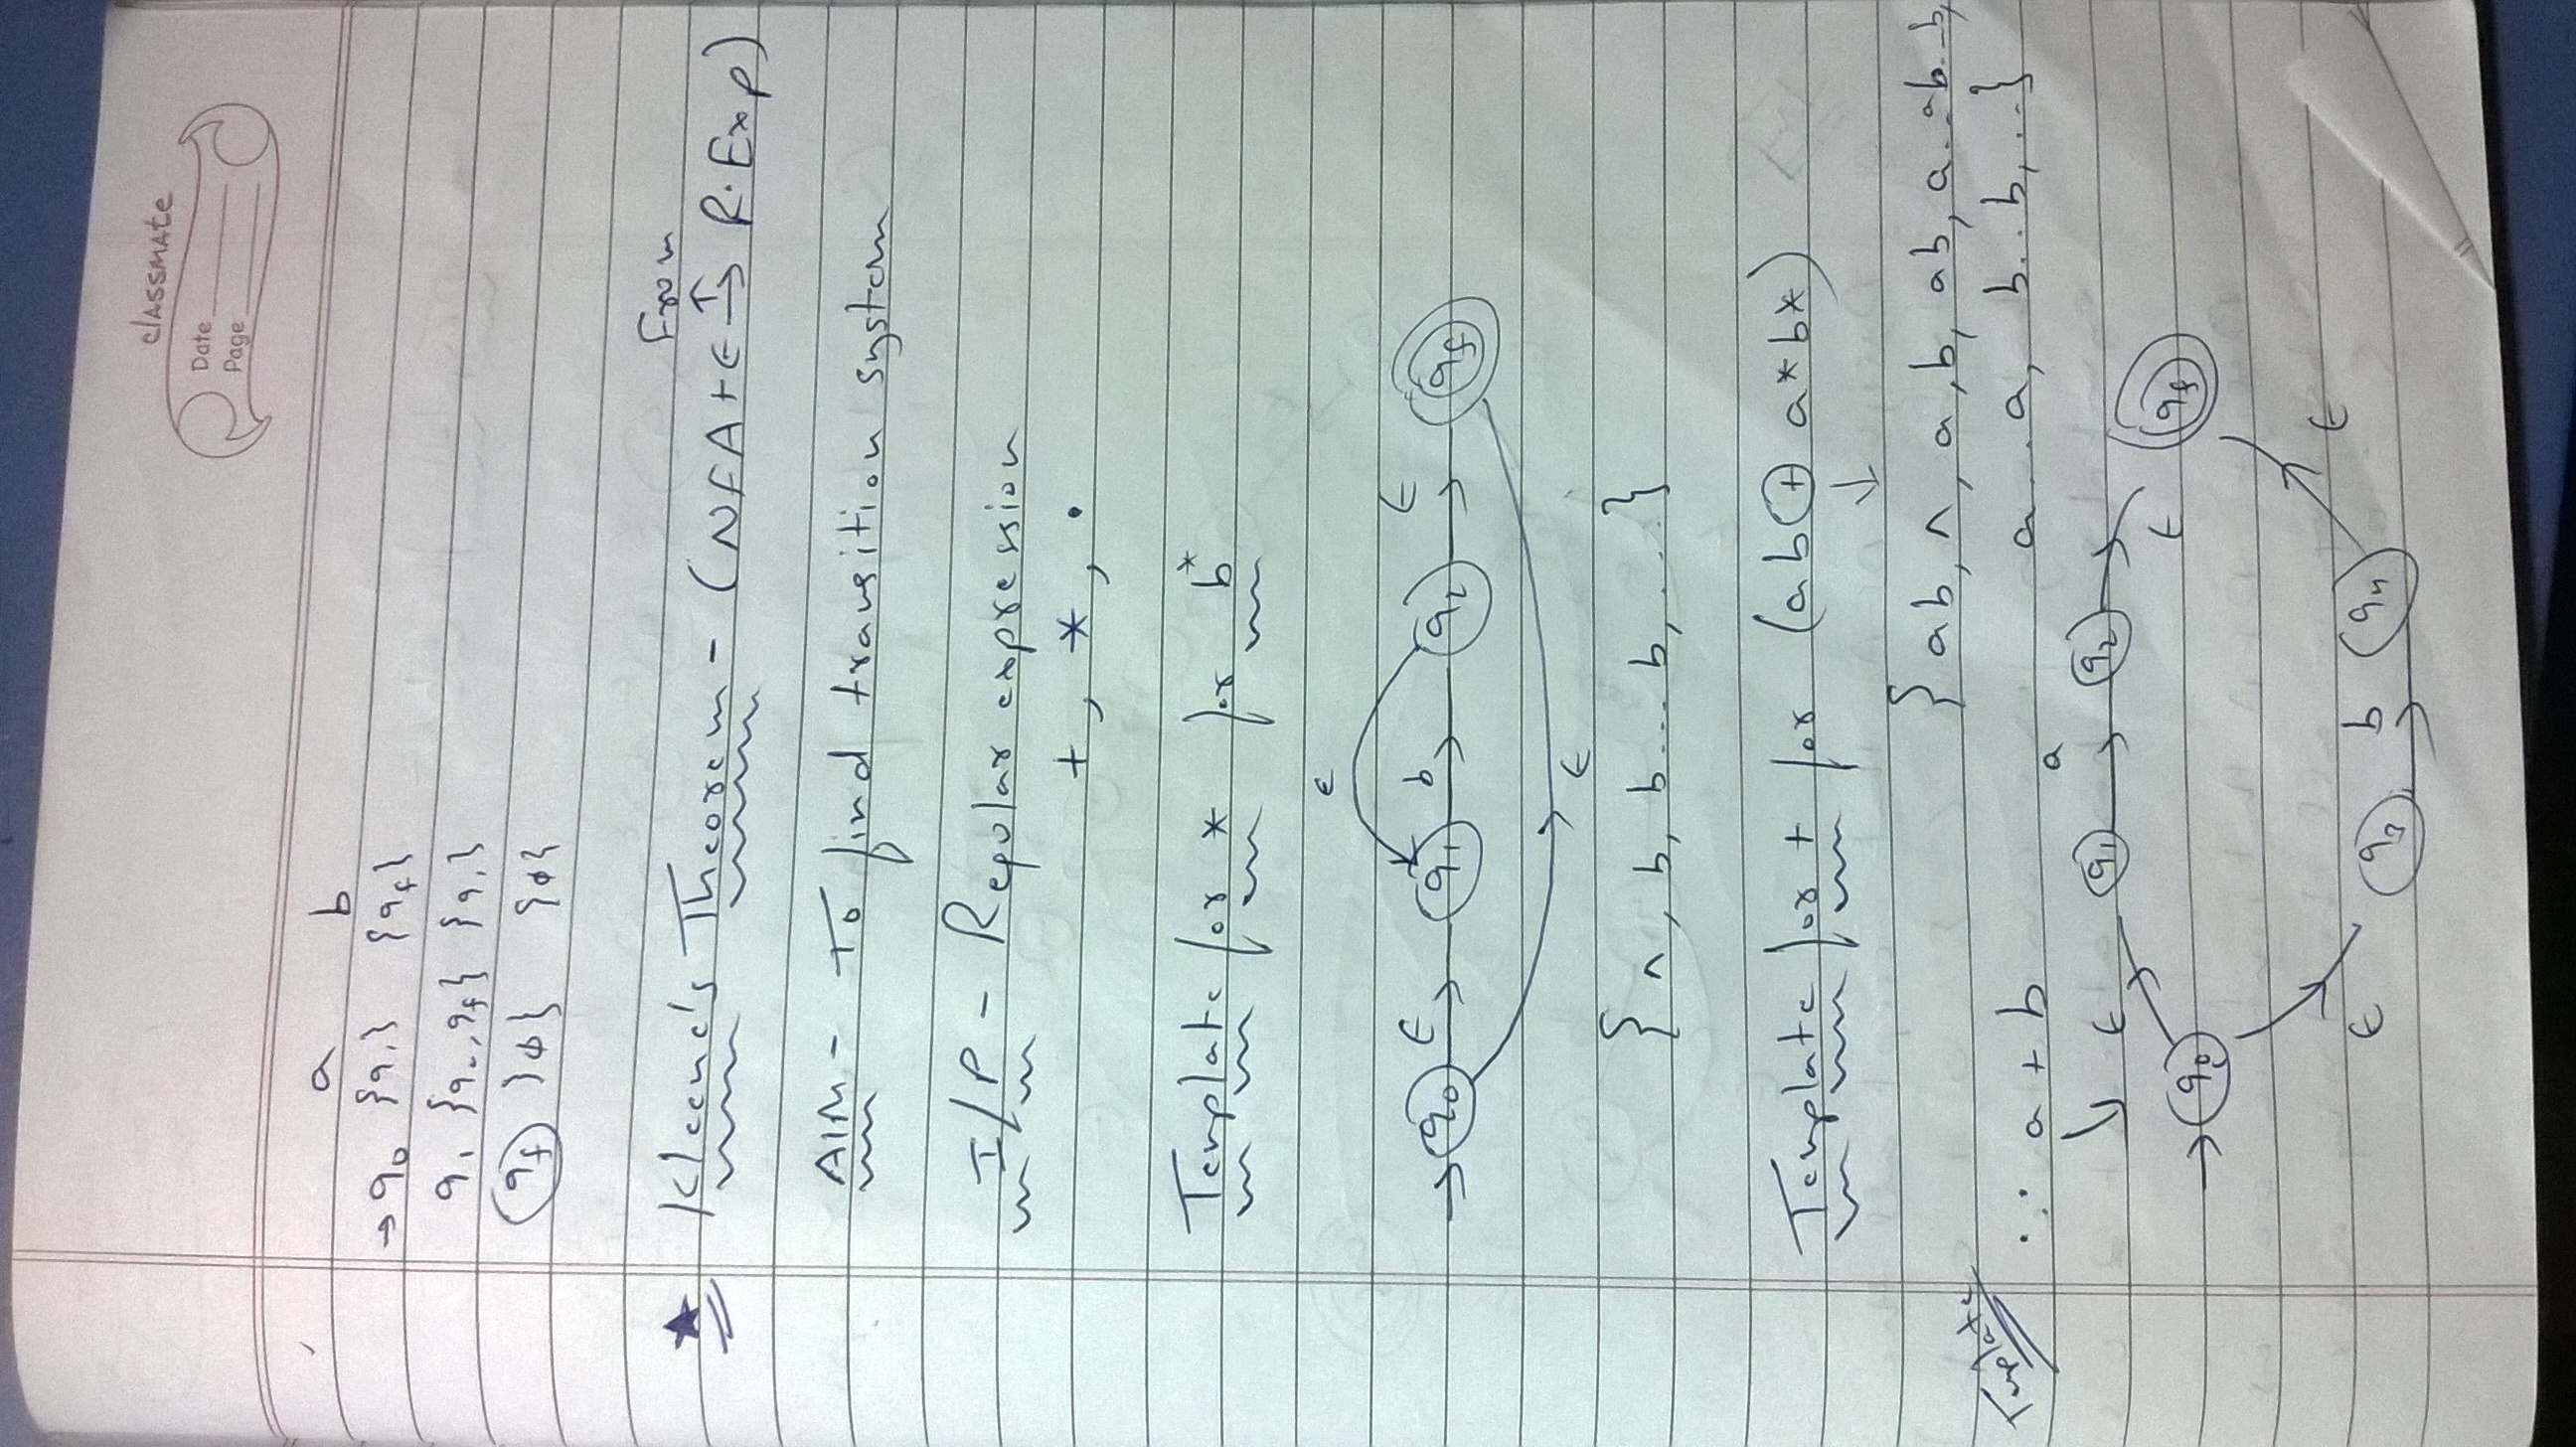 classmate
Date
Page
a b
→ q0 {q1} {qf}
q1 {q0, qf} {q1}
qf {ϕ} {ϕ}
From
★ Kleene's Theorem - (NFA+ϵ → R.Exp)
↑
AIM - To find transition system
I/P - Regular expression
+, *, •
Template for * for b*
ϵ
→ q0 ϵ q1 b q2 ϵ qf
ϵ
{ ∧, b, b... b, .... }
Template for + for (ab + a*b*)
↓
{ ab, ∧, a, b, ab, a...ab...b,
Template ∵ a + b a...a, b...b, ...}
↓ ϵ q1 a q2
→ q0 ϵ qf
ϵ q3 b q4 ϵ